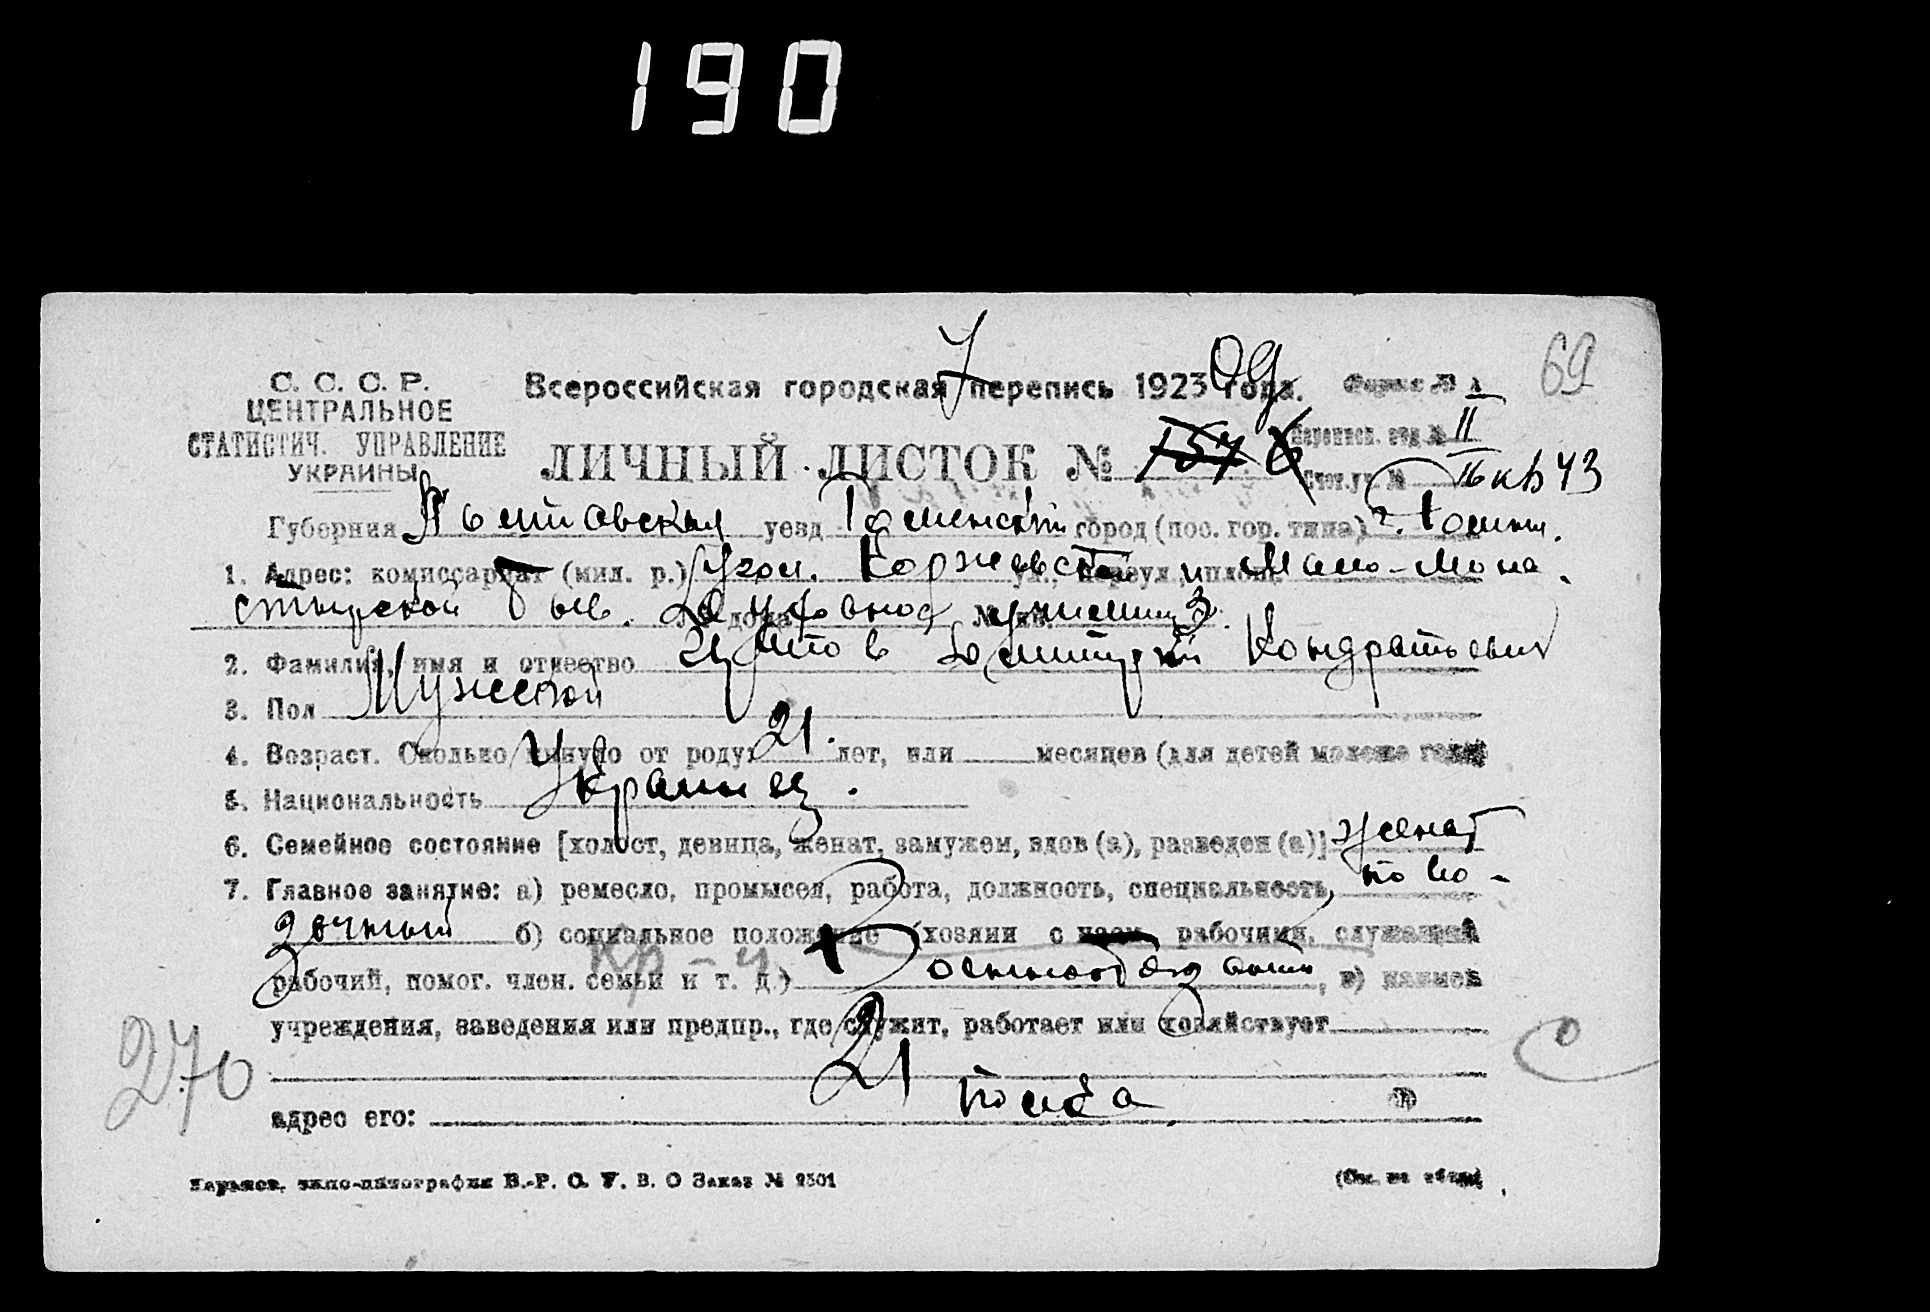 190
7 09 69
С. С. С. Р.
ЦЕНТРАЛЬНОЕ
СТАТИСТИЧ. УПРАВЛЕНИЕ
УКРАИНЫ
Всероссийская городская перепись 1923 года. Форма № 1
ЛИЧНЫЙ ЛИСТОК № 157 6
Переписн. отд. № II
Счет. уч. № 16 кв 43
Губерния Полтавская уезд Роменский город (пос. гор. типа) г. Ромны.
1. Адрес: комиссариат (мил. р.) Угол. Коржевской ул., переул., площ. и Мало-Мона-
стырской быв. Духовное № дома № кв. училище.
2. Фамилия, имя и отчество Дмитрий Кондратьевич
3. Пол Мужской
4. Возраст. Сколько минуло от роду: 21. лет, или месяцев (для детей моложе года)
5. Национальность Украинец.
6. Семейное состояние [холост, девица, женат, замужем, вдов (а), разведен (а)] женат
7. Главное занятие: а) ремесло, промысел, работа, должность, специальность, пово-
зочный б) социальное положение (хозяин с наем. рабочими, служащий
рабочий, помог. член. семьи и т. д.) Военнообязанный, в) наимен
кр-н
учреждения, заведения или предпр., где служит, работает или хозяйствует
21 полка
адрес его:
270
Харьков, типо-литография В.-Р. С. У. В. О Заказ № 2501
(См. на обор.)